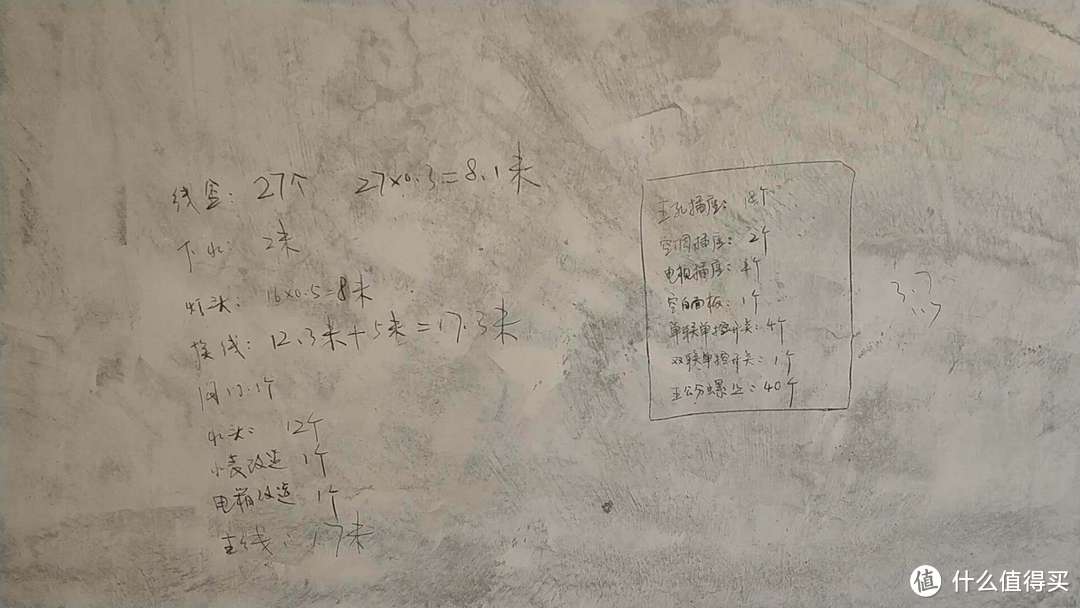 线盒: 27个 27×0.3=8.1米
下水: 2米
灯头: 16×0.5=8米
换线: 12.3米+5米=17.3米
阀门: 1个
水头: 12个
水表改造 1个
电箱改造 1个
主线: 17米
五孔插座: 个
空调插座: 2个
电视插座: 个
空白面板: 1个
单联单控开关: 4个
双联单控开关: 1个
五公分螺丝: 40个
值 什么值得买